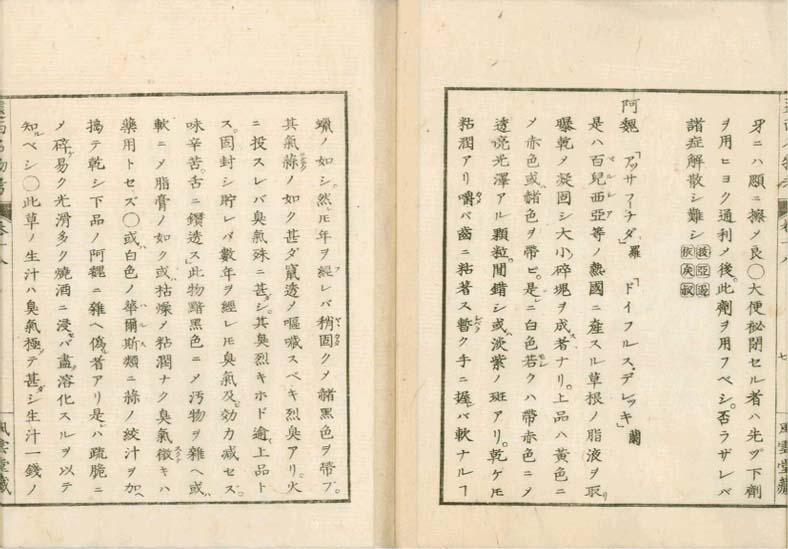 牙ニハ頤ニ擦メ良〇大便秘閉セル者ハ先ヅ下劑
ヲ用ヒヨク通利メ後。此劑ヲ用フベシ。否ラザレバ
諸症解散シ難シ
阿魏「アッサフーチダ」羅「ドイフルス・デレッキ」蘭
是ハ百兒西亞等ノ熱國ニ産スル草根ノ脂液ヲ取リ
曝乾メ凝固シ大小碎塊ヲ成ス者ナリ。上品ハ黄色ニ
メ赤色或ハ諸色ヲ帶ビ。是ニ白色若クハ帶赤色ニメ
透亮光澤アル顆粒。間錯シ或ハ淡紫ノ斑アリ。乾ケ𪜈
粘潤アリ嚼メバ齒ニ粘著ス暫ク手ニ握レバ軟ナルヿ
蠟ノ如シ。然レ𪜈年ヲ經レバ稍固クメ赭黑色ヲ帶ブ。
其氣蒜ノ如ク甚ダ竄透メ嘔噦スベキ烈臭アリ。火
ニ投スレバ臭氣殊ニ甚シ。其臭烈キホド逾上品ト
ス。固封シ貯レバ數年ヲ經レ𪜈臭氣及ビ効力減セズ。
味辛苦。舌ニ鑽透ス」此物黯黑色ニメ汚物ヲ雜ヘ或ハ
軟ニメ脂膏ノ如ク或ハ枯燥メ粘潤ナク臭氣微キハ
藥用トセズ〇或ハ白色ノ華爾斯類ニ蒜ノ絞汁ヲ加ヘ
搗テ乾シ下品ノ阿魏ニ雜ヘ偽ル者アリ是ハ疏脆ニ
メ碎ケ易ク光滑多ク燒酒ニ浸セバ盡ク溶化スルヲ以テ
知ルベシ〇此草ノ生汁ハ臭氣極テ甚ダシ生汁一錢ノ
卷十八
風雲堂藏
卷十八
七
風雲堂藏